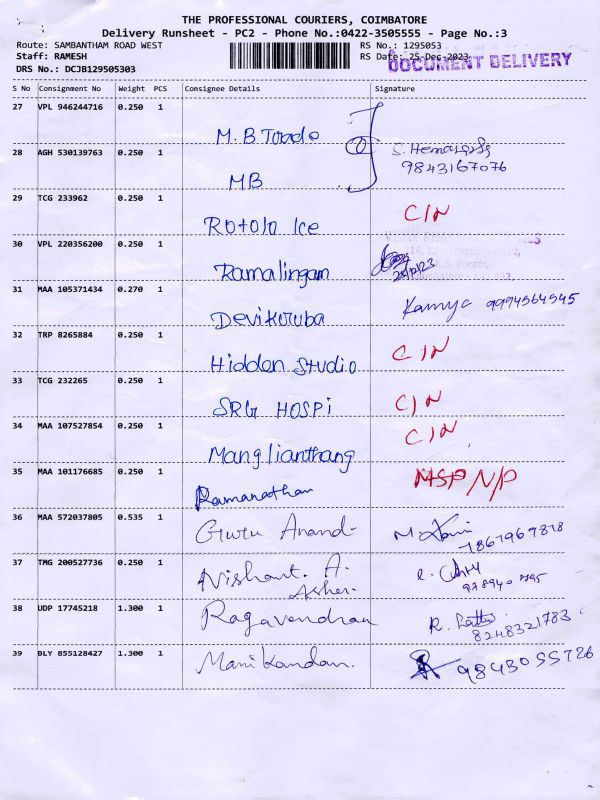 THE PROFESSIONAL COURIERS, COIMBATORE
Delivery Runsheet - PC2 - Phone No.:0422-3505555 - Page No.:3
Route: SAMBANTHAM ROAD WEST RS No.: 1295053
Staff: RAMESH RS Date: 25-Dec-2023
DOCUMENT DELIVERY
DRS No.: DCJB129505303
S No Consignment No Weight PCS Consignee Details Signature
27 VPL 946244716 0.250 1
M.B Toode
28 AGH 530139763 0.250 1
9843167076
MB
29 TCG 233962 0.250 1
Rotolo Ice C/N
30 VPL 220356200 0.250 1
Ramalingam 25/12/23
31 MAA 105371434 0.270 1
Kamya 9994564545
Devikuruba
32 TRP 8265884 0.250 1
Hidden Studio C/N
33 TCG 232265 0.250 1
SRG HOSPI C/N
34 MAA 107527854 0.250 1
C/N
Manglianthang
35 MAA 101176685 0.250 1
Ramanathan N/P
36 MAA 572037805 0.535 1
Guru Anand
7867969818
37 TMG 200527736 0.250 1
Nishant. A.
Asher.
38 UDP 17745218 1.300 1
Ragavendran R.
8248321783
39 BLY 855128427 1.300 1
Manikandan. 9843055726